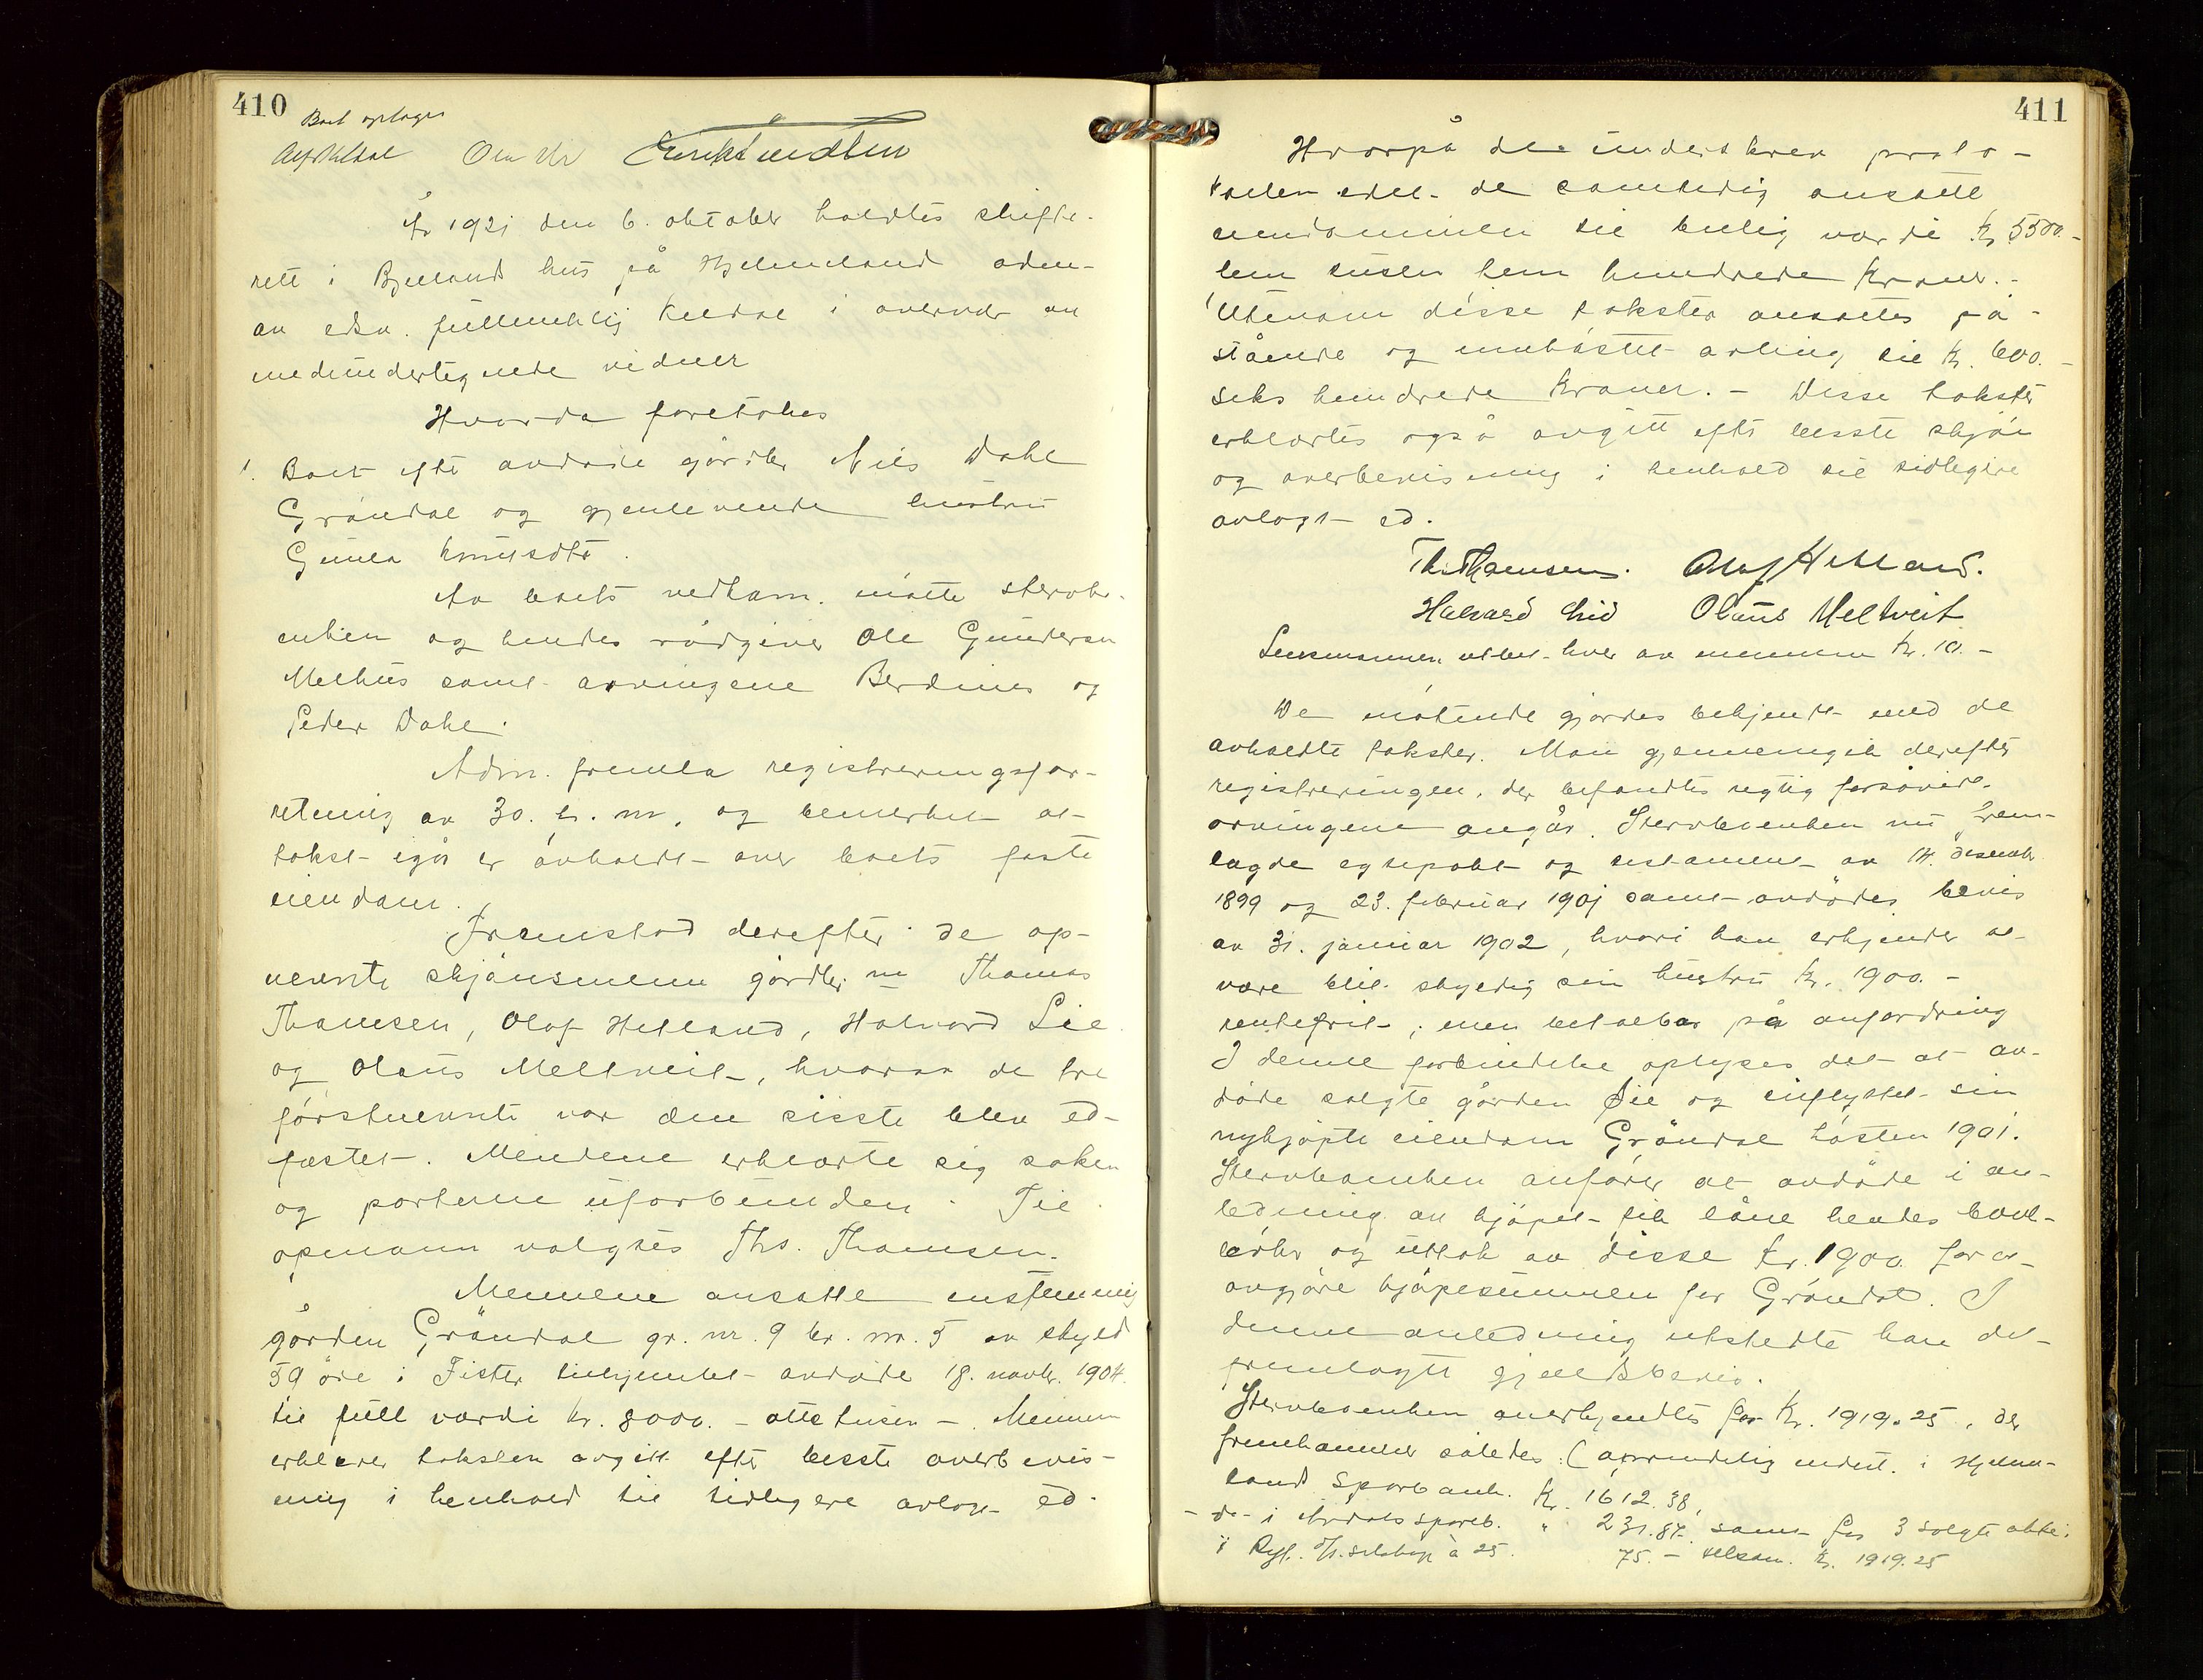 410
Boet optages
Alf Kildal Om Nr
År 1921 den 6. oktober holdtes skifte-
rett i Bjelland hus på Hjelmeland adm-
av edsv. fullmektig Kildal i overvær av
medundertegnede vidner
Hvorda foretokes
1. Boet efter avdøde gårdbr Nils Dahl
Grøndal og gjenlevende hustru
Gunla Knutsdtr.
Av boets vedkom. møtte stervbo-
enken og hendes rådgiver Ole Gundersen
Melhus samt arvingene Berdines og
Peder Dahl.
Adm. fremla registreringsfor-
retning av 30. f. m. og bemerket at
takst igår er avholdt over boets faste
eiendom.
Fremstod derefter de op-
nevnte skjønsmenn gårdbr. ne Thomas
Thomsen, Olaf Helland, Halvard Lie
og Olaus Meltveit, hvorav de tre
førstnevnte var den siste blev ed-
fæstet. Mendene erklærte sig saken
og parterne uforbunden. Til
opmann valgtes Ths. Thomsen.
Mennene ansatte enstemmig
gården Grøndal gr. nr. 9 br. nr. 5 av skyld
59 øre i Fister tilhjemlet avdøde 18. novbr. 1904.
til full værdi kr. 8000. - otte tusen - Mennene
erklærer taksten avgitt efter beste overbevis-
ning i henhold til tidligere avlagt ed.
411
Hvorpå de underskrev proto-
kollen idet de samtidig ansatte
eiendommen til bulig værdi kr 5500.-
fem tusen fem hundrede kroner.-
Utenom disse takster ansattes på-
stående og innhøstet avling til kr. 600.-
seks hundrede kroner. - Disse takster
erklærtes også avgitt efter beste skjøn
og overbevisning i henhold til tidligere
avlagt ed.
Th. Thomsen. Olaf Helland.
Halvard Lie Olaus Meltveit
Lensmannen utbet. hver av mennene kr. 10.-
De møtende gjordes bekjendt med de
avholdte takster. Man gjennemgik derefter
registreringen, der befandtes rigtig forsåvidt
arvingene angår. Stervboenken nu frem-
lagde egtepakt og testament av 14. desember
1899 og 23. februar 1901 samt avdødes bevis
av 31. januar 1902, hvori han erkjender at
være blit skyldig sin hustru kr. 1900.-
rentefrit, men betalbar på anfordring
I denne forbindelse oplyses det at av-
døde solgte gården Lie og tilflyttet sin
nykjøpte eiendom Grøndal høsten 1901.
Stervboenken anfører at avdøde i an-
ledning av kjøpet fik låne hendes bank-
bøker og uttok av disse kr. 1900 for at
avgjøre kjøpesummen for Grøndal. I
denne anledning utstedte han det
fremlagte gjeldsbevis.
Stervboenken anerkjendtes for kr. 1919.25, der
fremkommer således: (oprindelig indest. i Hjelme-
land Sparebank. kr. 1612.38,
- do - i Årdals spareb. " 231.87 samt for 3 solgte aktier
i Ryf. D/s. selskap à 25. 75.- tilsam. kr. 1919.25